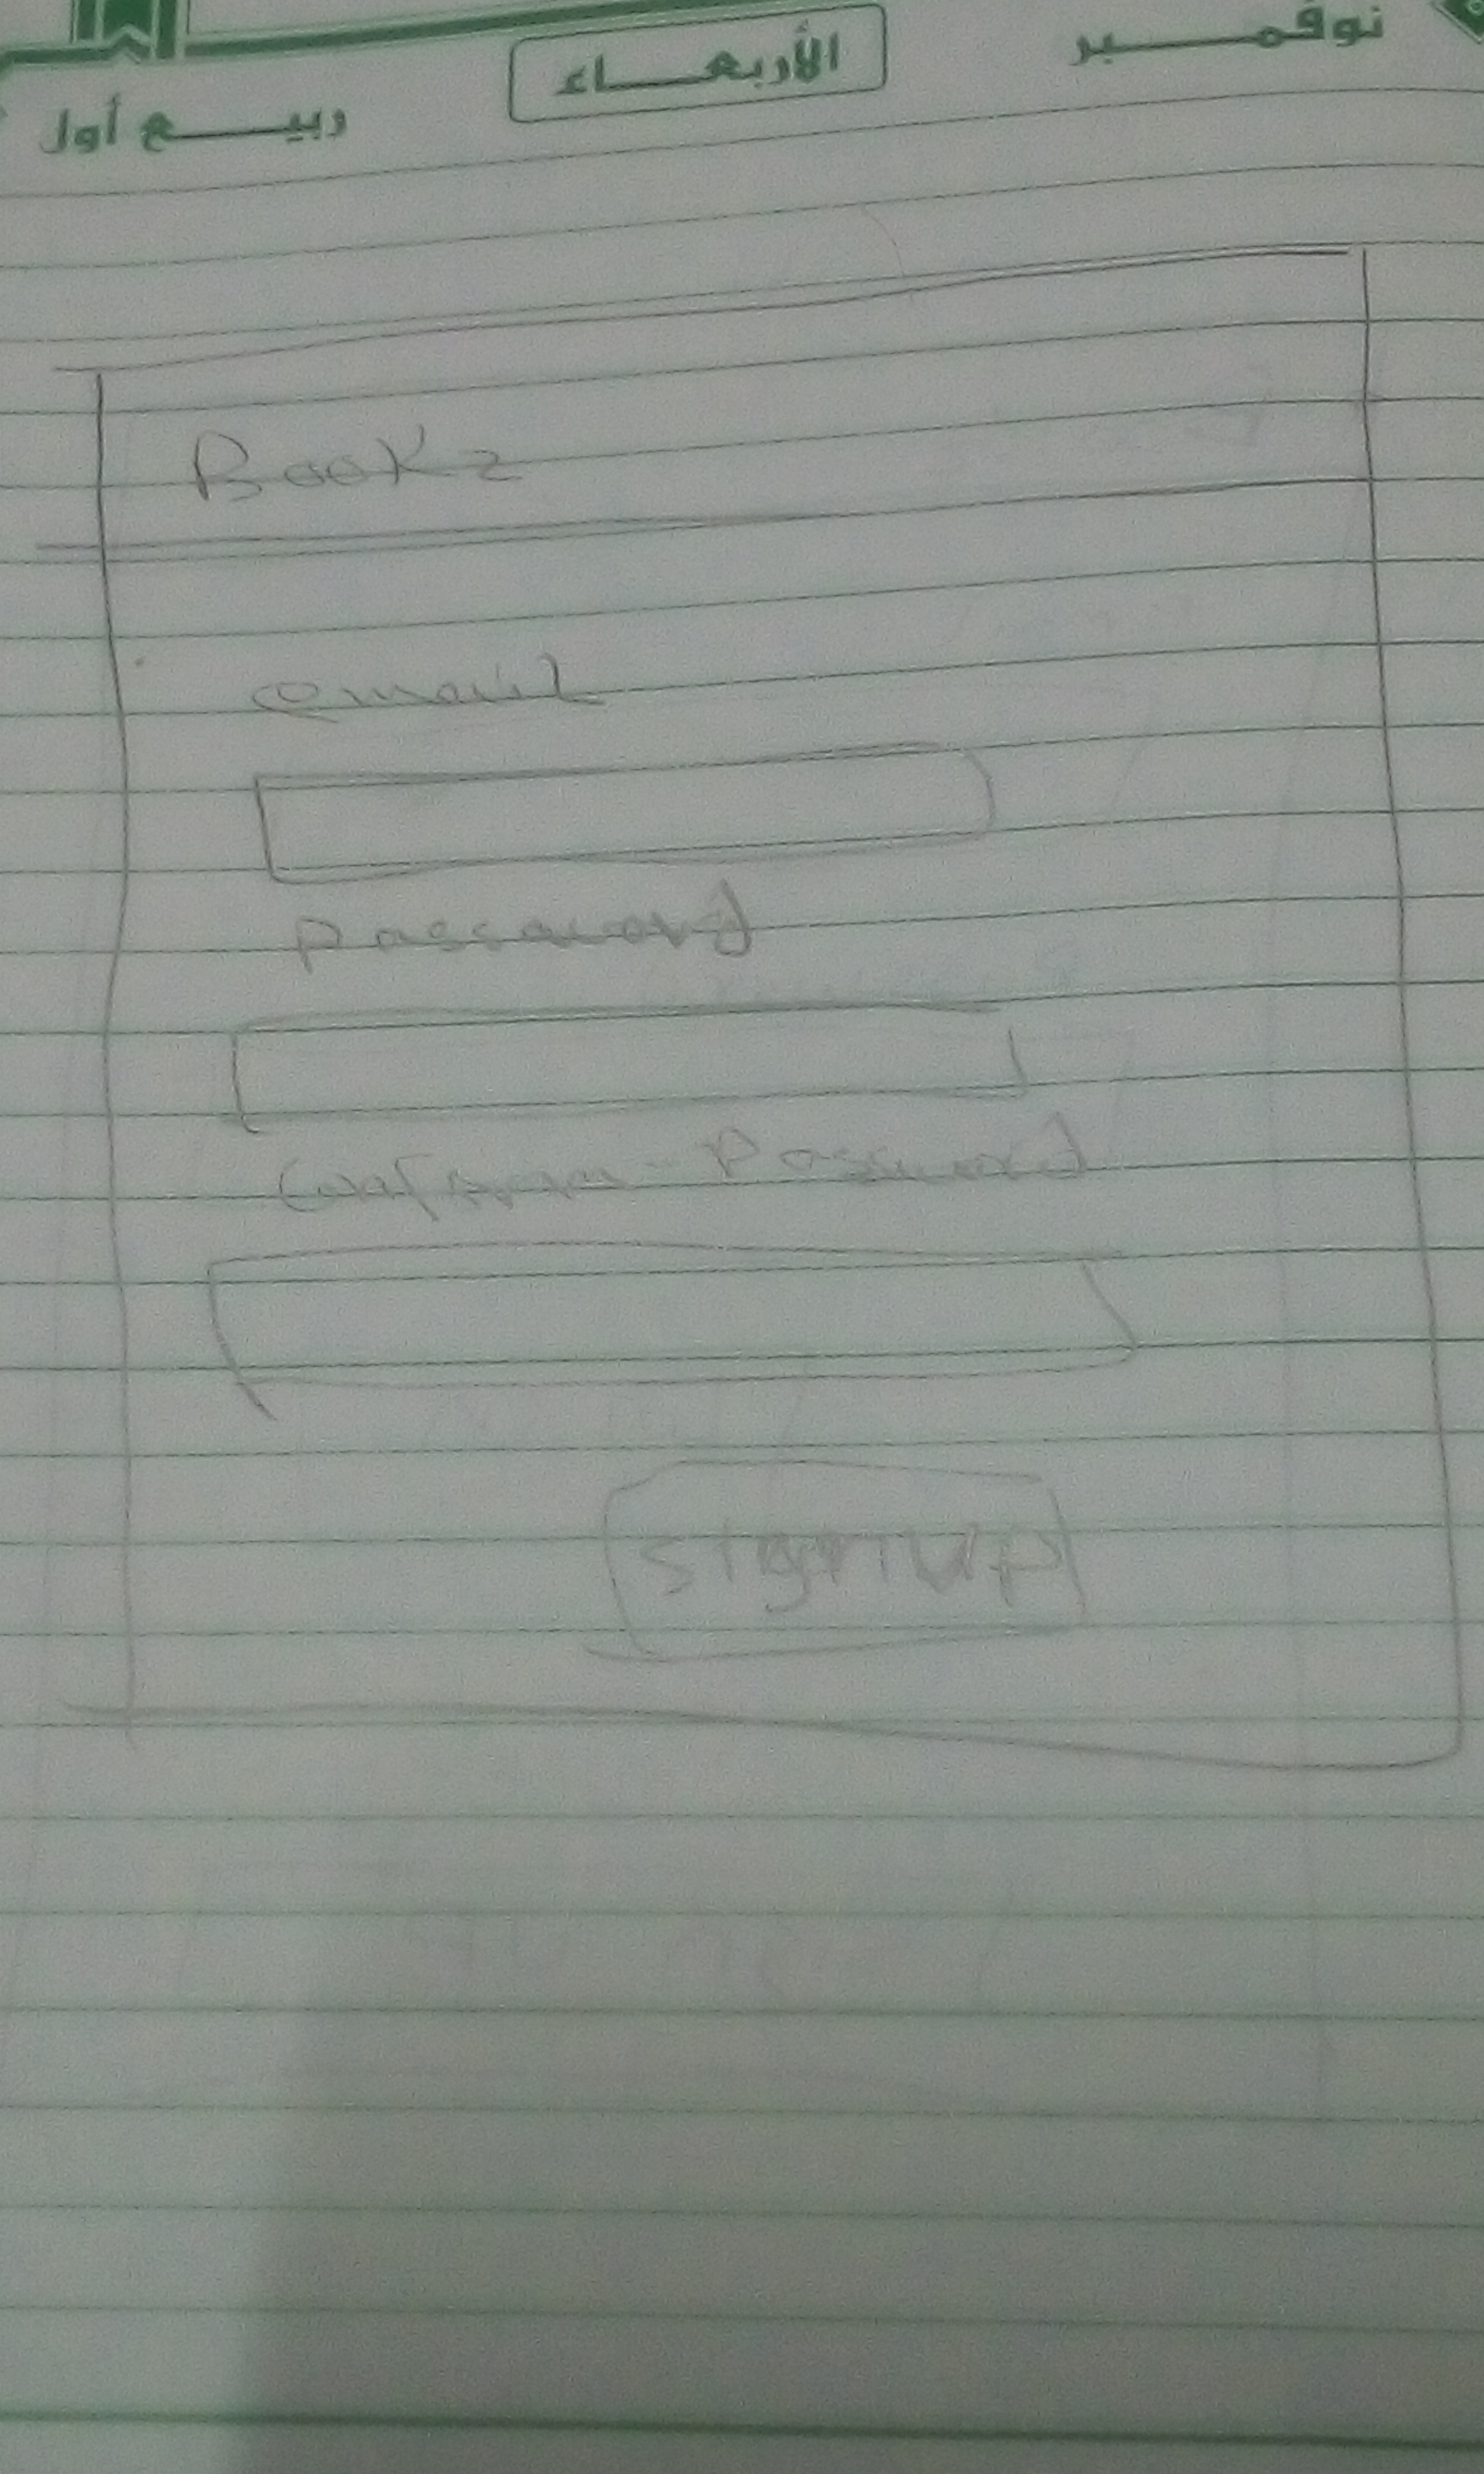 نوفمبر
الأربعاء
ربيع أول
BooKz
email
password
Confirm-Password
signup